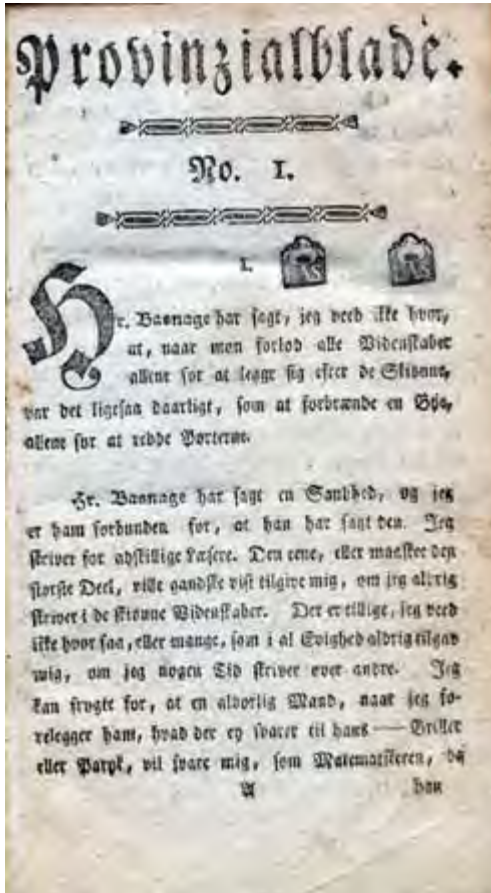 Provinzialblade.
No. 1.
1.
Hr. Basnage har sagt, jeg veed ikke hvor,
at, naar man forlod alle Videnskaber
allene for at legge sig efter de Skiønne,
var det ligesaa daarligt, som at forbrænde en Bye,
allene for at redde Porterne.
Hr. Basnage har sagt en Sandhed, og jeg
er ham forbunden for, at han har sagt den. Jeg
skriver for adskillige Læsere. Den eene, eller maaskee den
største Deel, ville gandske vist tilgive mig, om jeg aldrig
skriver i de skiønne Videnskaber. Der er tillige, jeg veed
ikke hvor faa, eller mange, som i al Evighed aldrig tilgav
mig, om jeg nogen Tid skriver over andre. Jeg
kan frygte for, at en alvorlig Mand, naar jeg fo-
relegger ham, hvad der ey svarer til hans — Briller
eller Paryk, vil svare mig, som Matematikeren, da
A han